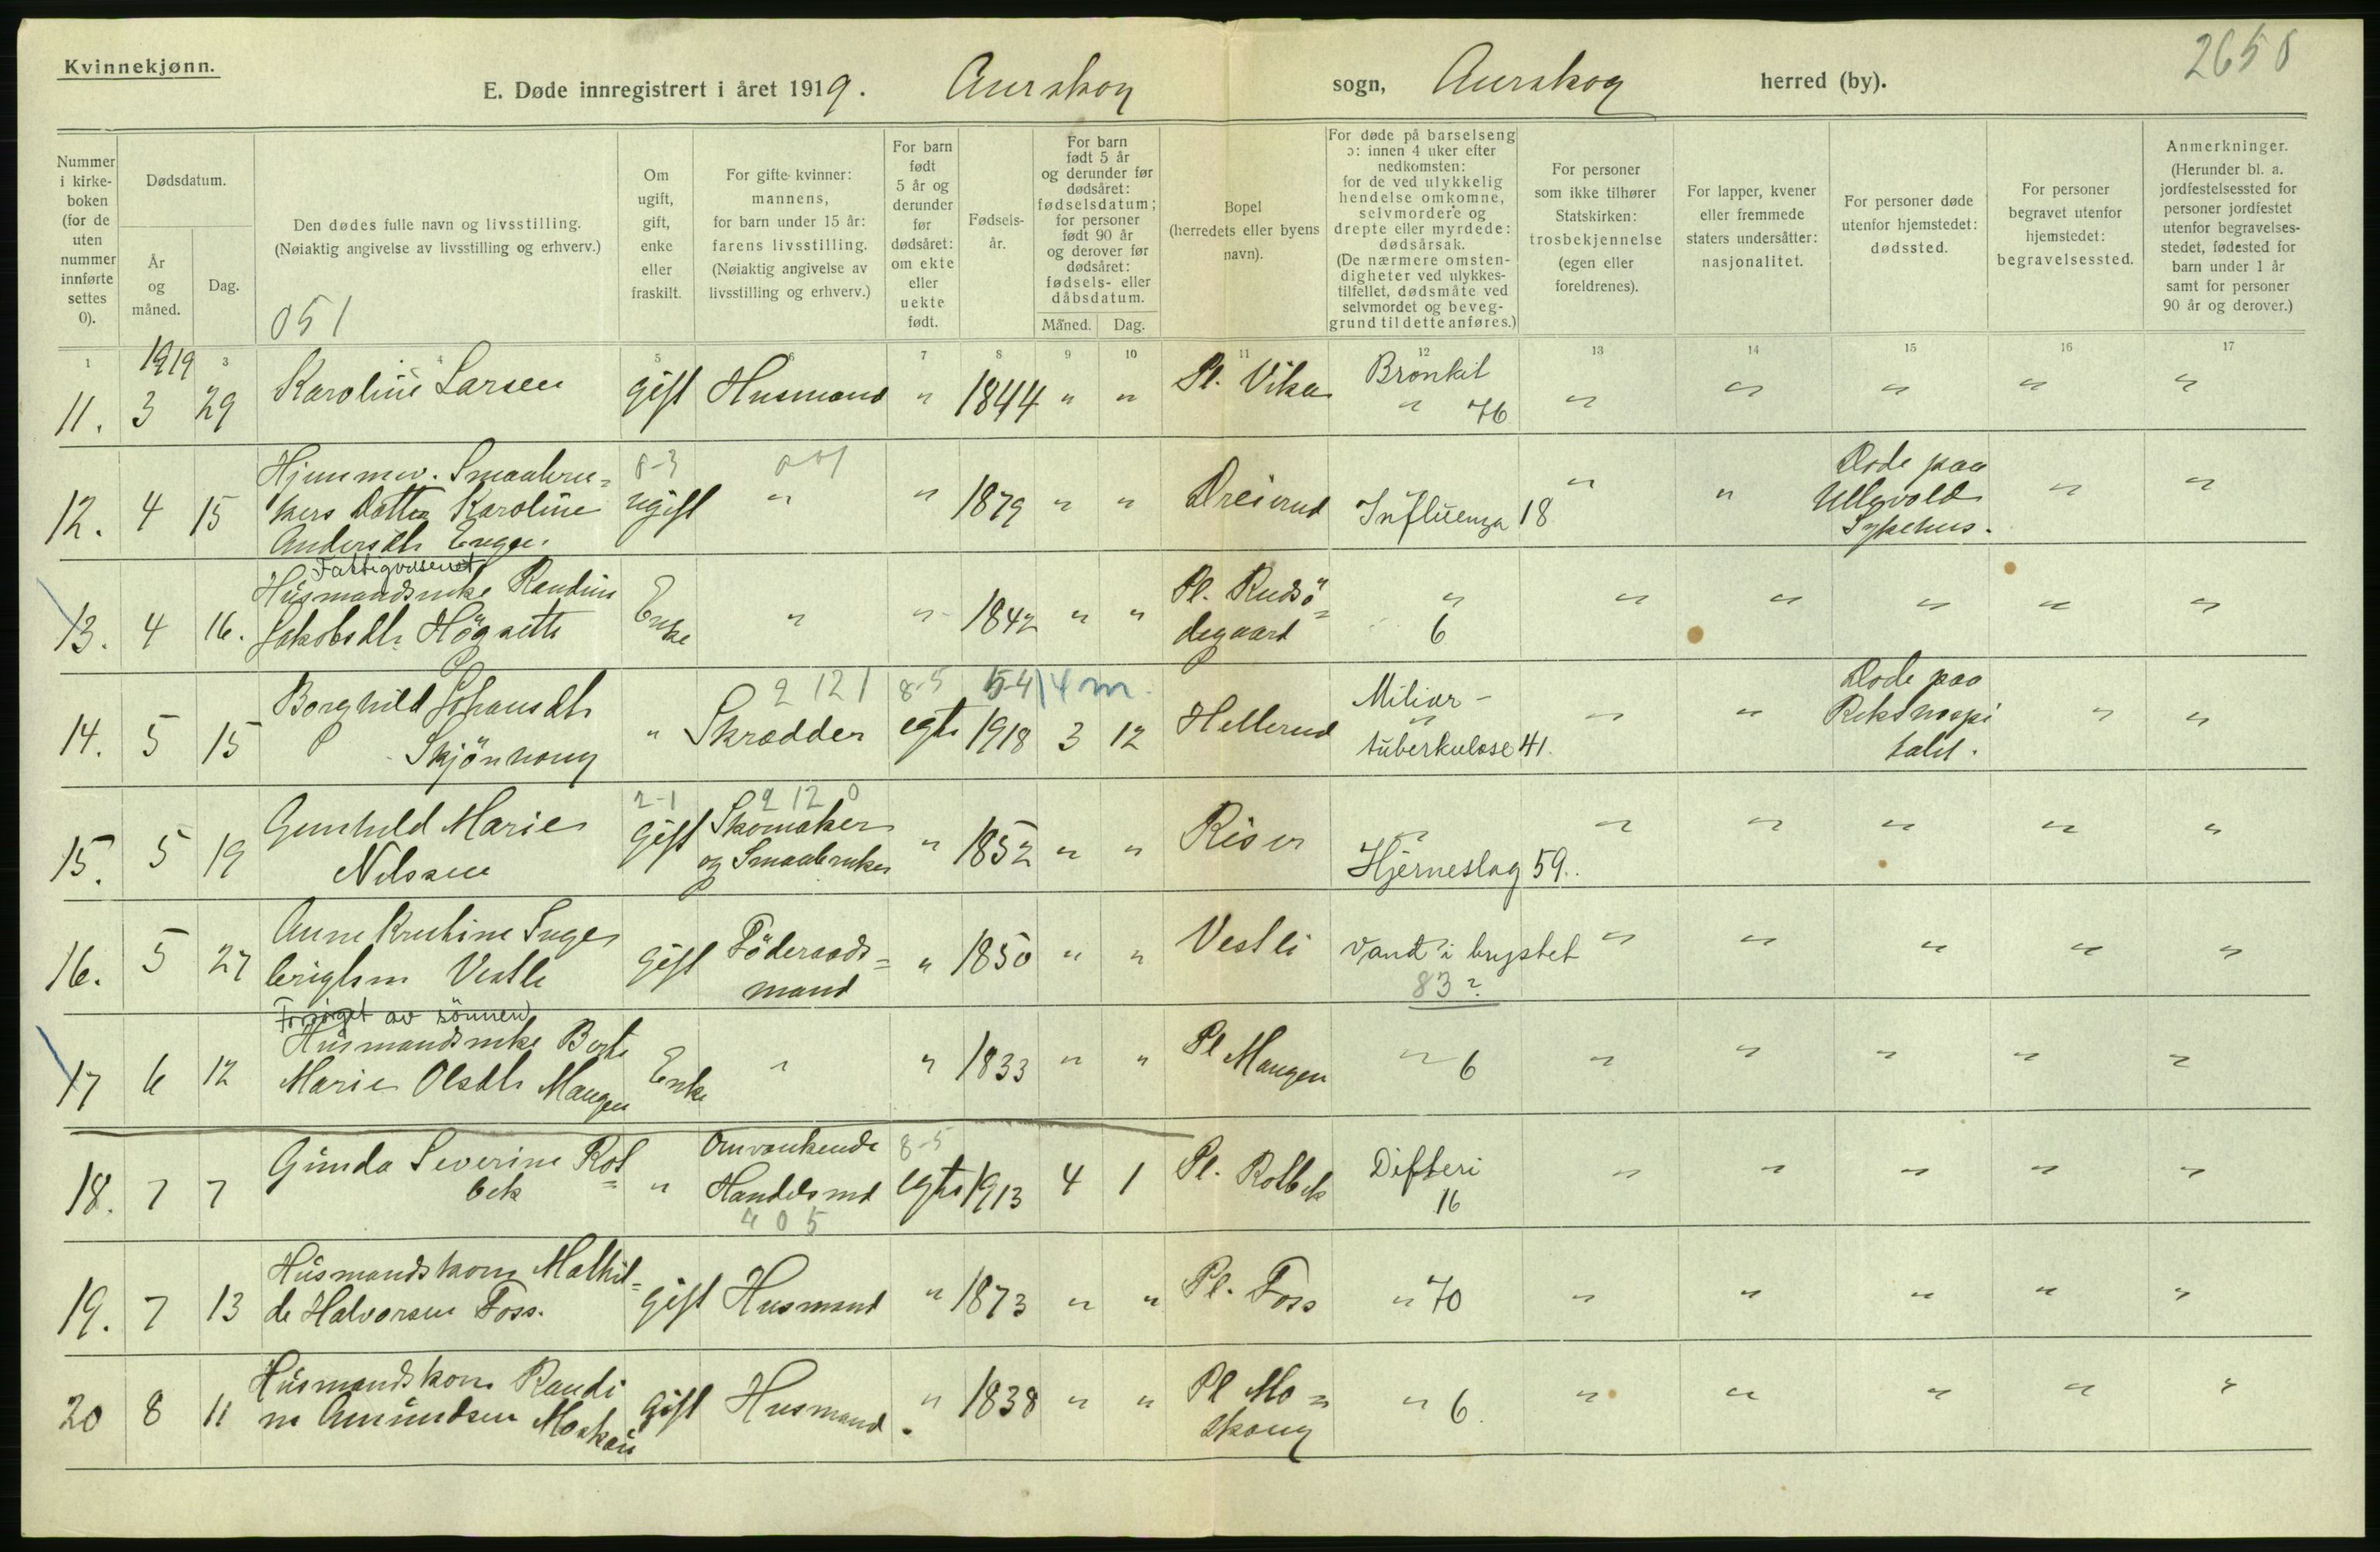 Kvinnekjønn.
2650
E. Døde innregistrert i året 1919. Aurskog sogn, Aurskog herred (by).
Nummer i kirke- boken (for de uten nummer innførte settes 0).
Dødsdatum.
År og måned.
Dag.
Den dødes fulle navn og livsstilling.
(Nøiaktig angivelse av livsstilling og erhverv.)
051
Om ugift, gift, enke eller fraskilt.
For gifte kvinner: mannens, for barn under 15 år: farens livsstilling. (Nøiaktig angivelse av livsstilling og erhverv.)
For barn født 5 år og derunder før dødsåret: om ekte eller uekte født.
Fødsels- år.
For barn født 5 år og derunder før dødsåret: fødselsdatum; for personer født 90 år og derover før dødsåret: fødsels- eller dåbsdatum.
Måned. Dag.
Bopel (herredets eller byens navn).
For døde på barselseng ɔ: innen 4 uker efter nedkomsten: for de ved ulykkelig hendelse omkomne, selvmordere og drepte eller myrdede: dødsårsak. (De nærmere omsten- digheter ved ulykkes- tilfellet, dødsmåte ved selvmordet og beveg- grund til dette anføres.)
For personer som ikke tilhører Statskirken: trosbekjennelse (egen eller foreldrenes).
For lapper, kvener eller fremmede staters undersåtter: nasjonalitet.
For personer døde utenfor hjemstedet: dødssted.
For personer begravet utenfor hjemstedet: begravelsessted.
Anmerkninger. (Herunder bl. a. jordfestelsessted for personer jordfestet utenfor begravelses- stedet, fødested for barn under 1 år samt for personer 90 år og derover.)
1 3 4 5 6 7 8 9 10 11 12 13 14 15 16 17
1919
11. 3 29 Karoline Larsen gift Husmand " 1844 " " Pl. Vika Bronkit " 76 " " " " "
8-3
12. 4 15 Hjemmev. Smaabru=
kers Datter Karoline
Andersdtr Enger. ugift " " 1879 " " Dreierud Influenza 18 " " Døde paa
Ullevold
Sykehus. " "
Fattigvæsenet
13. 4 16. Husmandsenke Randine
Jakobsdtr Høgsette Enke " " 1842 " " Pl. Rudsö=
degaard " 6 " " " " "
2 12 1 8-5 5-4 14 m.
14. 5 15 Borghild Johansdtr
Skjönhoug " Skrædder egte 1918 3 12 Hellerud Miliær-
" tuberkulose 41. " " Døde paa
Rikshospi
talet. " "
2-1 2 12 0
15. 5 19 Gunhild Marie
Nilssen gift Skomaker
og Smaabruker " 1852 " " Riser " Hjerneslag 59. " " " " "
16. 5 27 Anne Kristine Inge
brigtsen Vestli gift Föderaads=
mand " 1850 " " Vestli Vand i brystet
83? " " " " "
Forsörget av sönnen
17 6 12 Husmandsenke Berte
Marie Olsdtr Mangen Enke " " 1833 " " Pl Mangen " 6 " " " " "
8-5
18. 7 7 Gunda Severine Rol=
bek " Omvankende
Handelsmd egte 1913 4 1 Pl. Rolbek Difteri
16 " " " " "
405
19. 7 13 Husmandskone Mathil=
de Halvorsen Foss. gift Husmand " 1873 " " Pl. Foss " 70 " " " " "
20 8 11 Husmandskone Randi
ne Amundsen Moskau gift Husmand. " 1838 " " Pl Mo=
skoug " 6. " " " " "